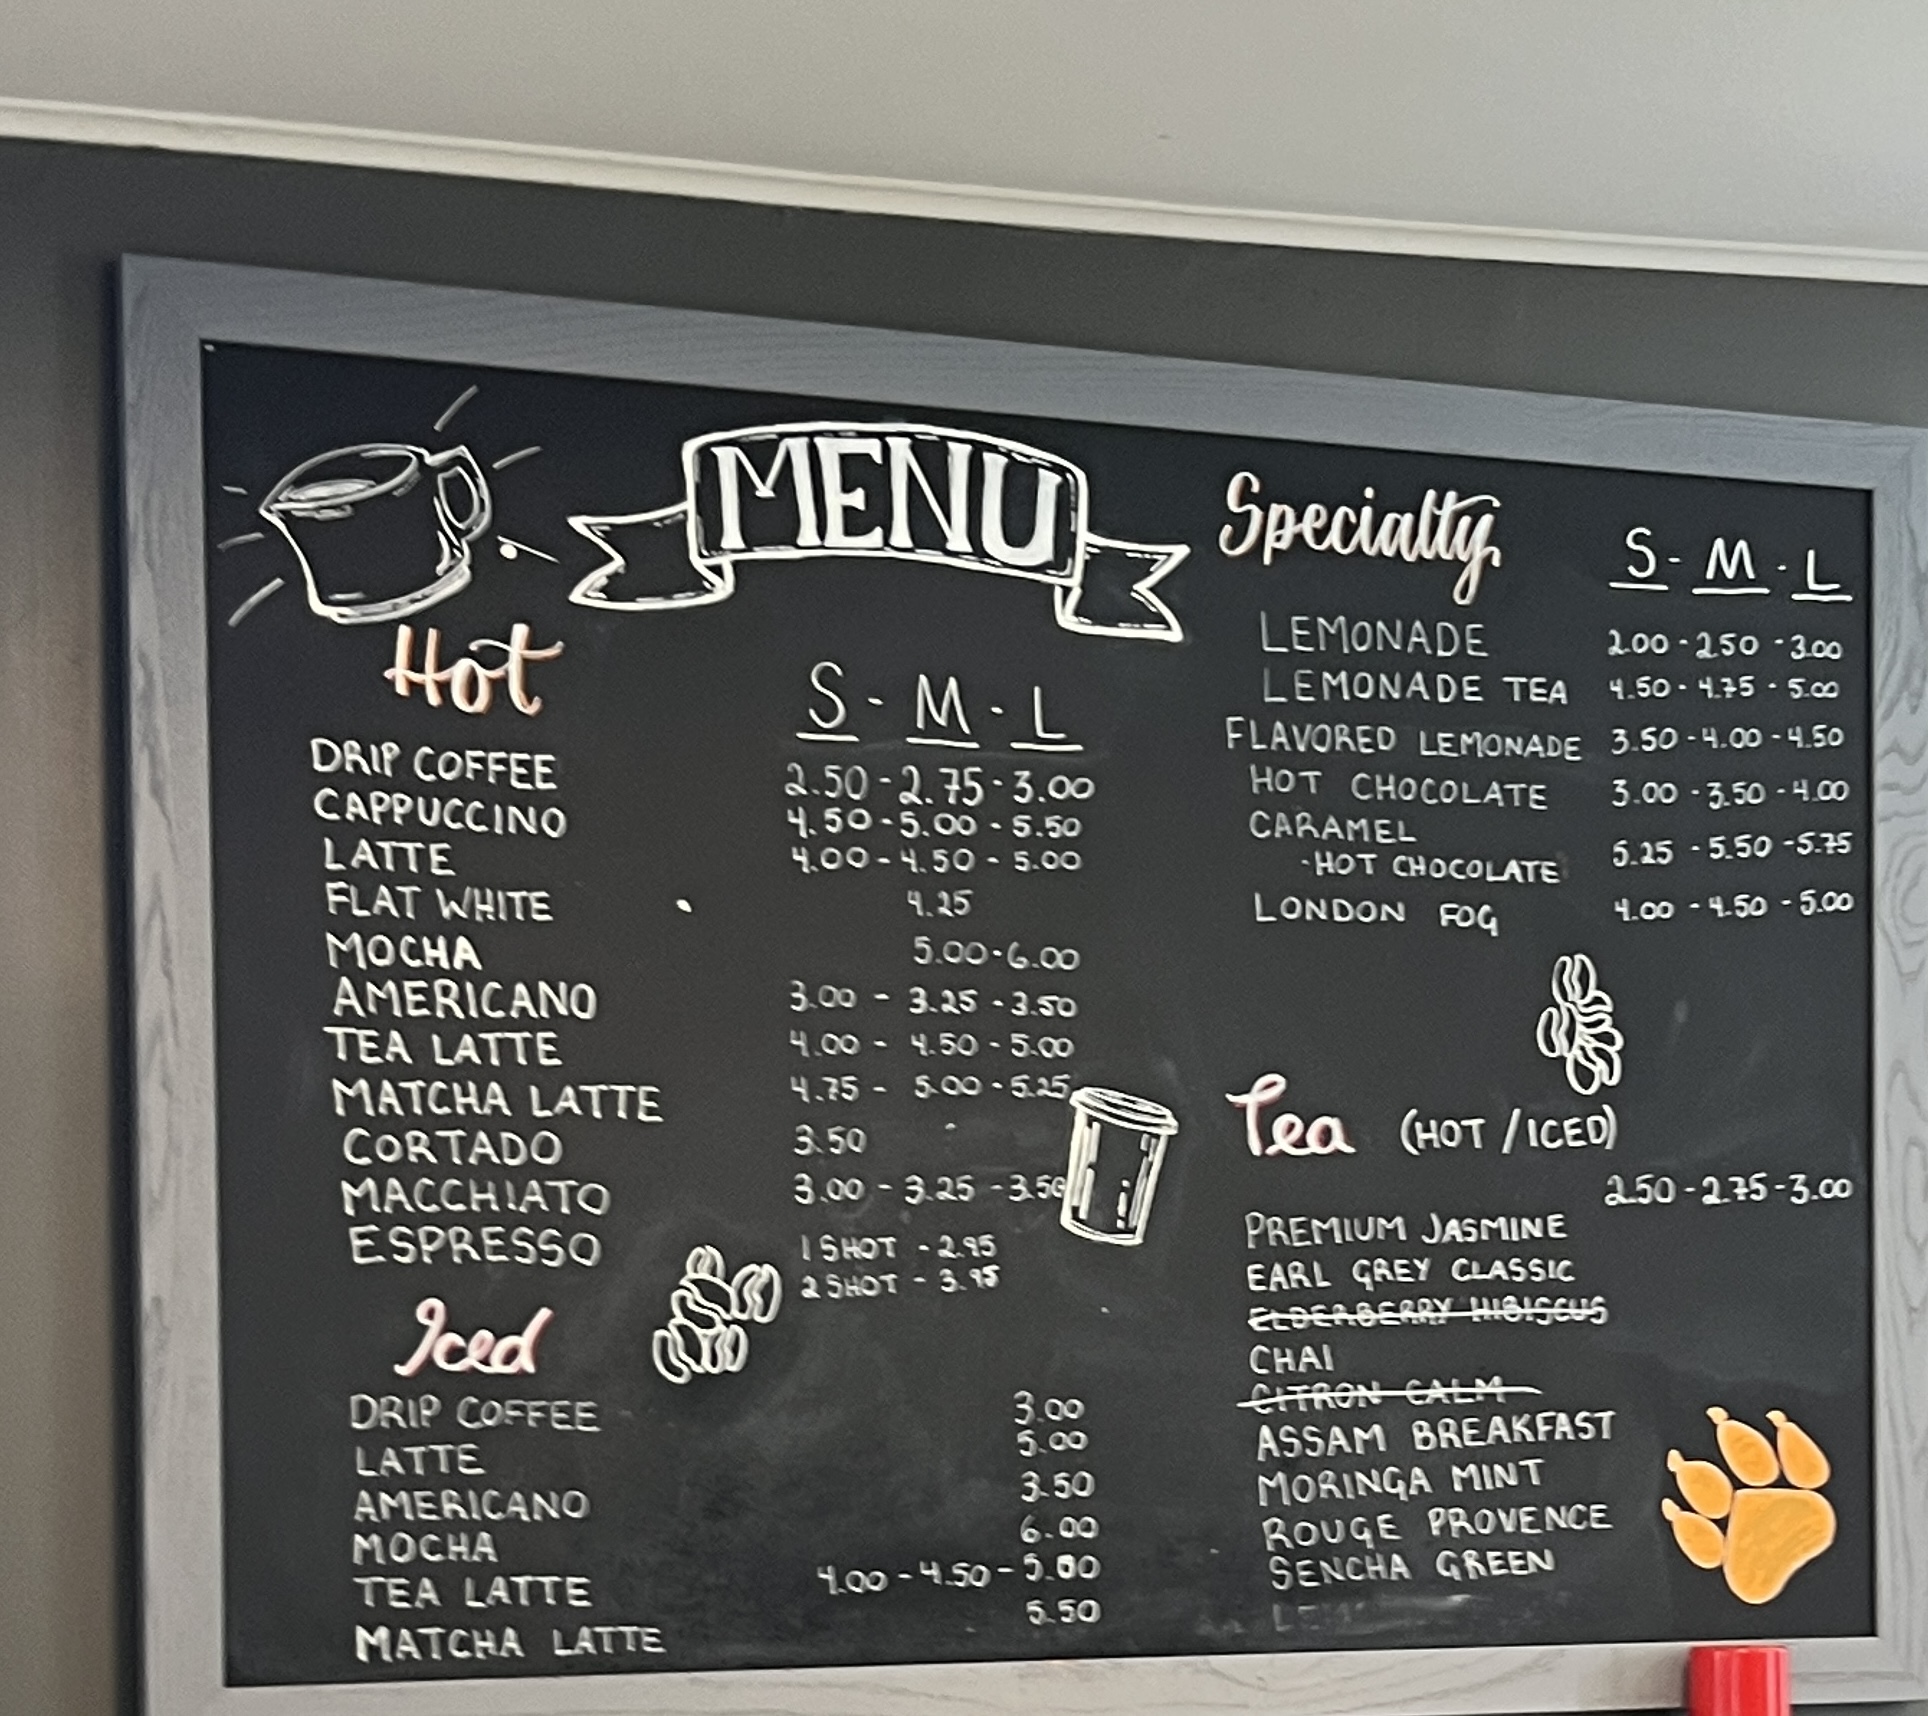 MENU
Hot
S - M - L
DRIP COFFEE 2.50 - 2.75 - 3.00
CAPPUCCINO 4.50 - 5.00 - 5.50
LATTE 4.00 - 4.50 - 5.00
FLAT WHITE 4.25
MOCHA 5.00 - 6.00
AMERICANO 3.00 - 3.25 - 3.50
TEA LATTE 4.00 - 4.50 - 5.00
MATCHA LATTE 4.75 - 5.00 - 5.25
CORTADO 3.50
MACCHIATO 3.00 - 3.25 - 3.50
ESPRESSO 1 SHOT - 2.95
2 SHOT - 3.95
Iced
DRIP COFFEE 3.00
LATTE 5.00
AMERICANO 3.50
MOCHA 6.00
TEA LATTE 4.00 - 4.50 - 5.00
MATCHA LATTE 5.50
Specialty
S - M - L
LEMONADE 2.00 - 2.50 - 3.00
LEMONADE TEA 4.50 - 4.75 - 5.00
FLAVORED LEMONADE 3.50 - 4.00 - 4.50
HOT CHOCOLATE 3.00 - 3.50 - 4.00
CARAMEL
- HOT CHOCOLATE 5.25 - 5.50 - 5.75
LONDON FOG 4.00 - 4.50 - 5.00
Tea (HOT / ICED)
2.50 - 2.75 - 3.00
PREMIUM JASMINE
EARL GREY CLASSIC
ELDERBERRY HIBISCUS
CHAI
CITRON CALM
ASSAM BREAKFAST
MORINGA MINT
ROUGE PROVENCE
SENCHA GREEN